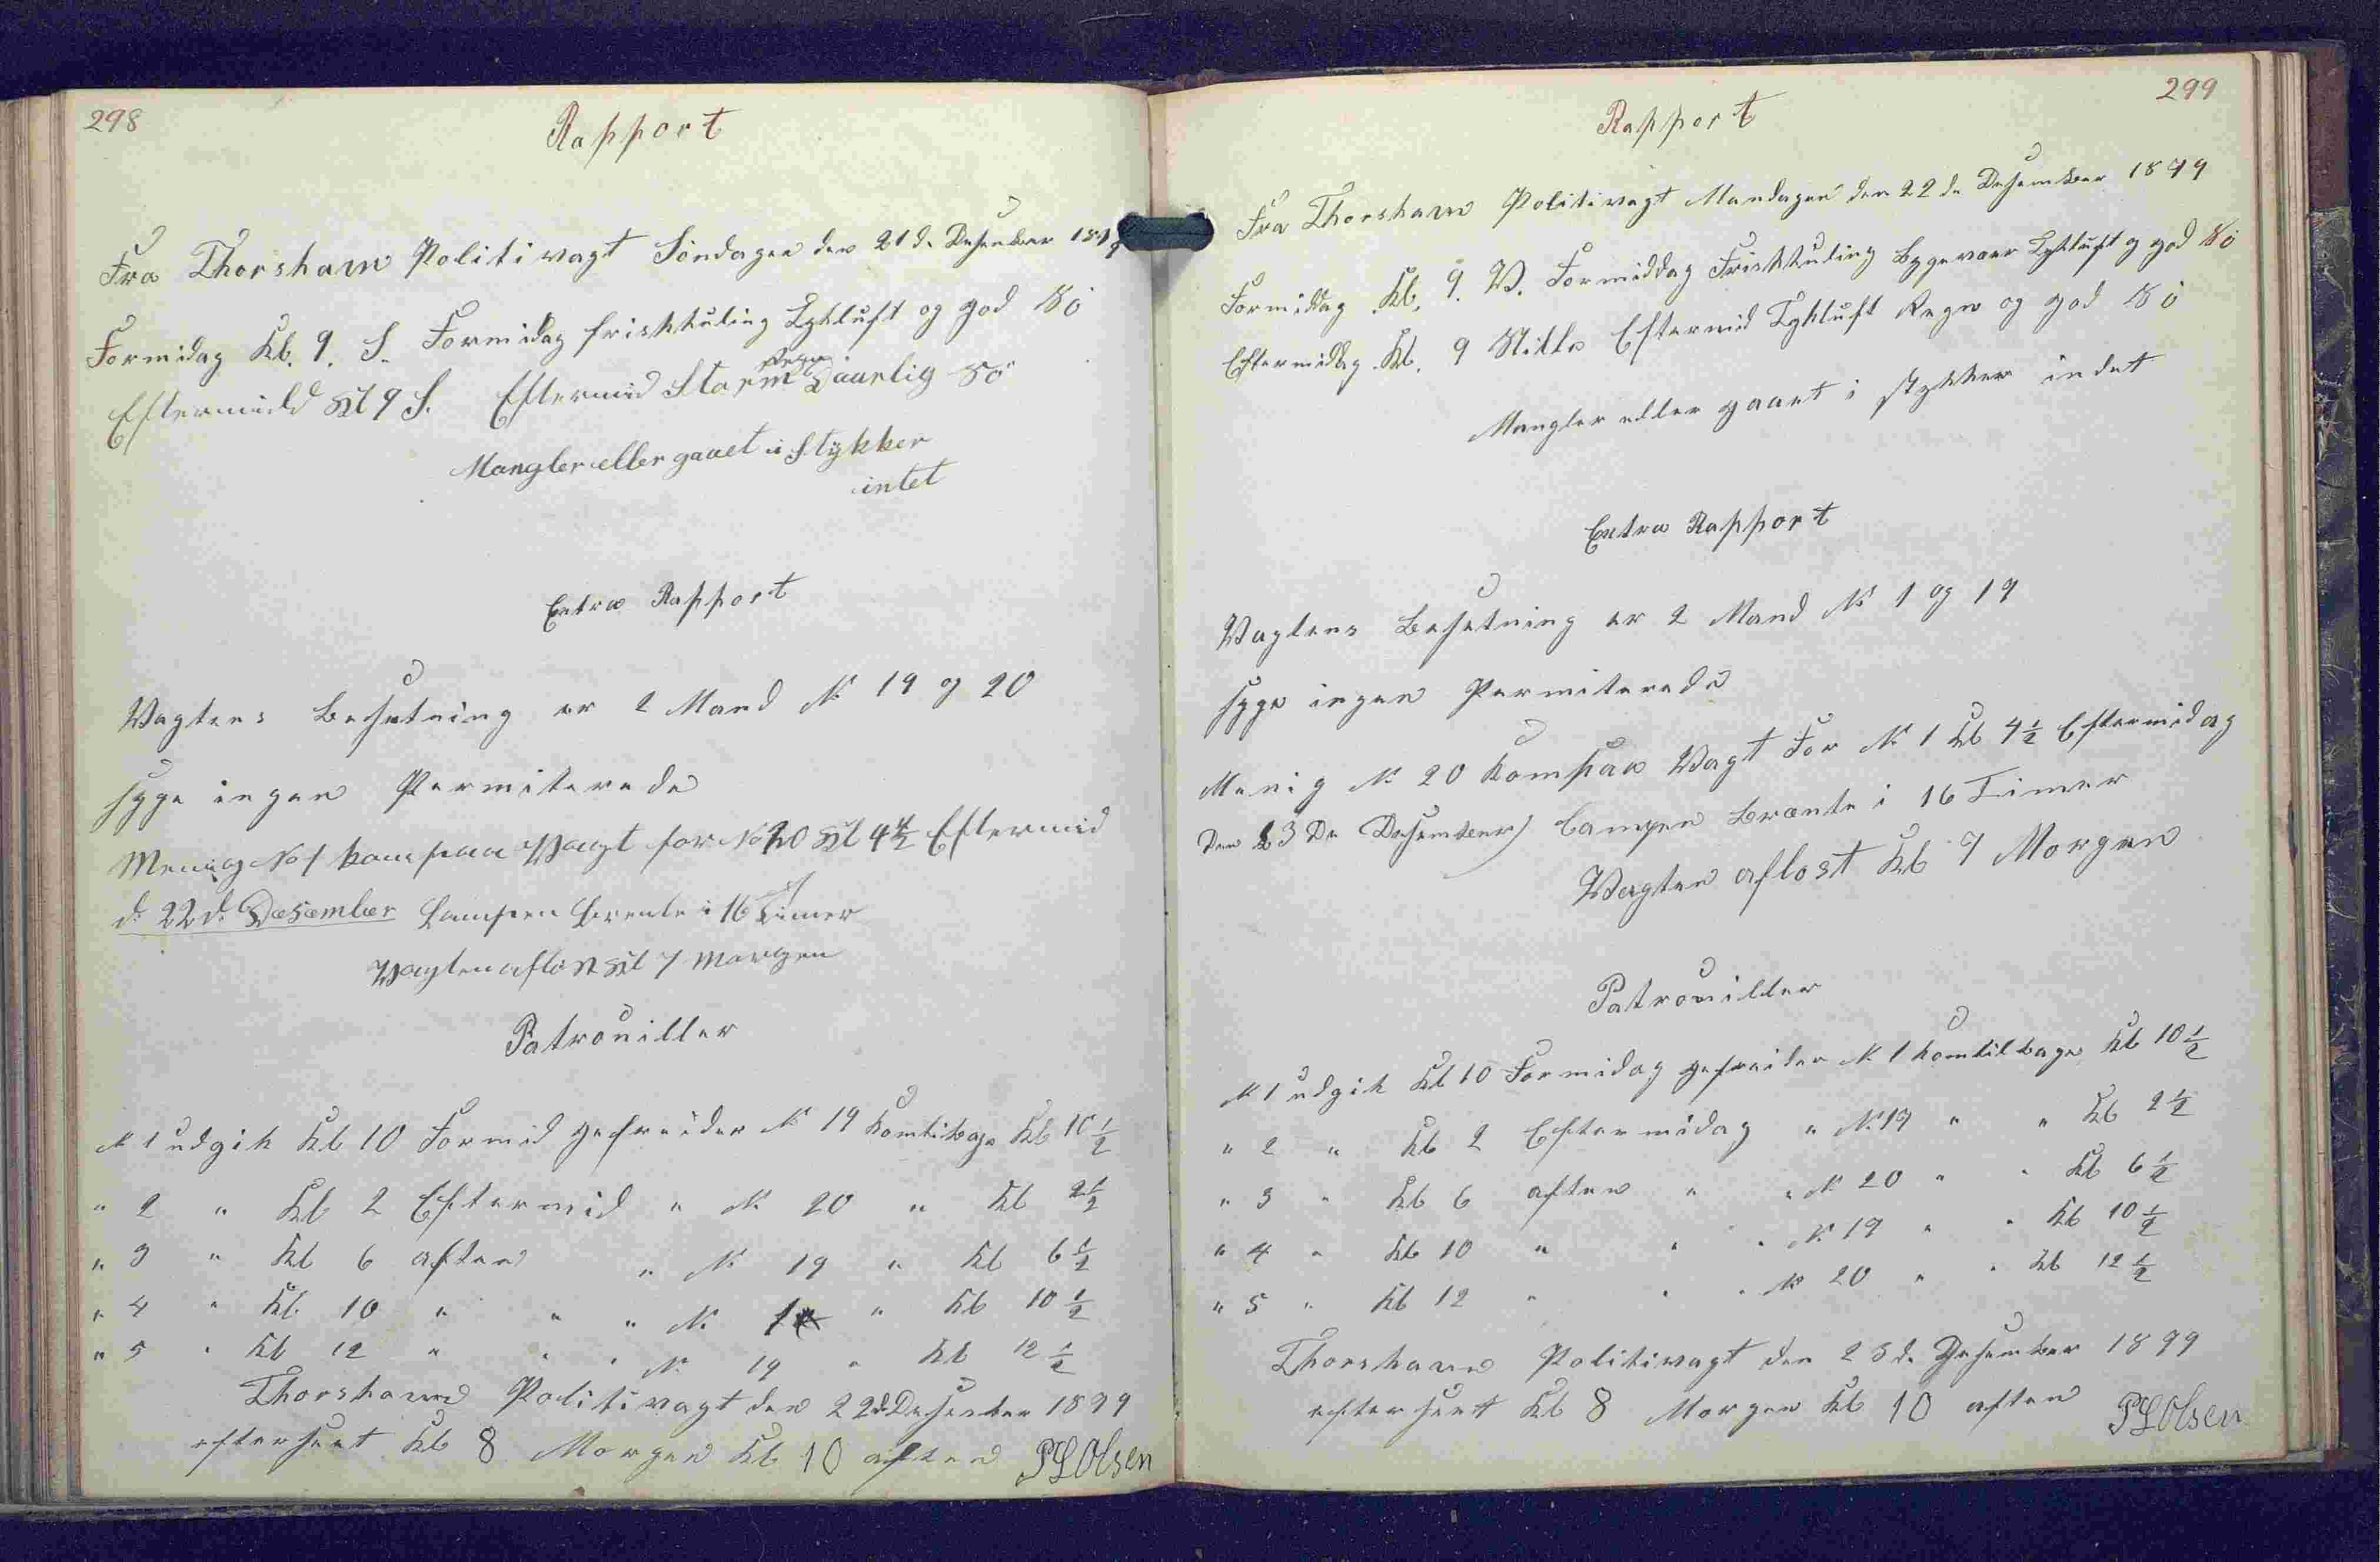 298
Rapport
Fra Thorshavn Politivagt Söndagen den 21 de Desember 1879
Formidag Kl. 9. S. Formidag friskkuling Tykluft og god Sö
Eftermidd Kl 9 S. Eftermid Storm Regn Daarlig Sö
Mangler eller gaaet i Stykker
intet
Extra Rapport
Vagtens Besetning er 2 Mand No 19 og 20
syge ingen Permiterede
Menig No 1 kom paa Vagt for No 20 Kl 4½ Eftermid
d. 22 d. Desember Lampen brente i 16 Timer
Vagten aflöst Kl 7 Morgen
Patrouiller
No 1 udgik Kl 10 Formid gefreider No 19 komtibage Kl 10½
" 2 " Kl 2 Eftermid " No 20 " Kl 2½
" 3 " Kl 6 aften " No 19 " Kl 6½
" 4 " Kl 10 " " " No 1 " Kl 10½
" 5 " Kl 12 " " " No 19 " Kl 12½
Thorshavn Politivagt den 22 de Desember 1879
efterseet Kl 8 Morgen Kl 10 aften PLOlsen
299
Rapport
Fra Thorshavn Politivagt Mandagen den 22 de Desember 1879
Formiddag Kl. 9. V. Formiddag Friskkuling Bygevær Tykluft og god Sö
Eftermiddag Kl. 9 Stille Eftermid Tykluft Regn og god Sö
Mangler eller gaaet i stykker indet
Extra Rapport
Vagtens Besetning er 2 Mand No 1 og 19
syge ingen Permiterede
Menig No 20 kom paa Vagt For No 1 Kl 4½ Eftermidag
Den 23 De Desember) Lampen Brænte i 16 Timer
Vagten aflöst Kl 7 Morgen
Patrouiller
No 1 udgik Kl 10 Formidag gefreider No 1 komtilbage Kl 10½
" 2 " Kl 2 Eftermidag " No 19 " " Kl 2½
" 3 " Kl 6 aften " " No 20 " " Kl 6½
" 4 " Kl 10 " " " No 19 " " Kl 10½
" 5 " Kl 12 " " " No 20 " " Kl 12½
Thorshavn Politivagt den 23 de Desember 1879
efterseett Kl 8 Morgen Kl 10 aften PLOlsen